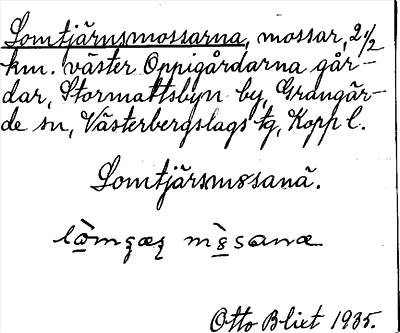 Lomtjärnsmossarna, mossar, 2 1/2
km. väster Oppigårdarna går-
dar, Stormattsbyn by, Grangär-
de sn, Västerbergslags tg, Kopp l.
Lomtjärsmssanä.
Otto Blixt 1935.